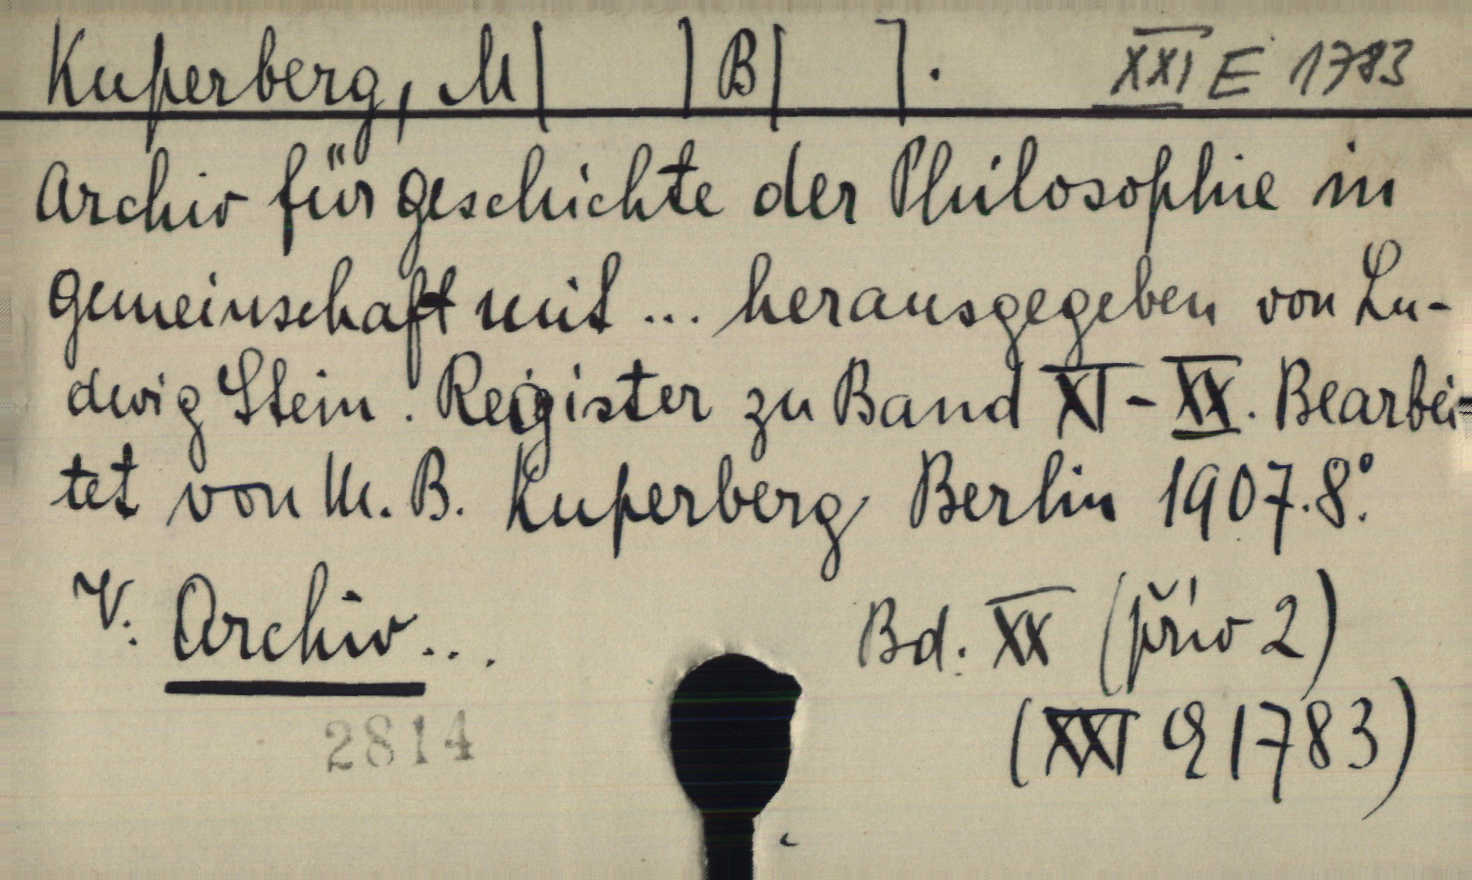 Kuperberg, M[ ] B[ ]. XXI E 1783
Archiv für Geschichte der Philosophie in
Gemeinschaft mit ... herausgegeben von Lu-
dwig Stein. Register zu Band XI - XX. Bearbei-
tet von M. B. Kuperberg Berlin 1907. 8°.
V. Archiv... Bd. XX (přív 2)
(XXI E 1783)
2814